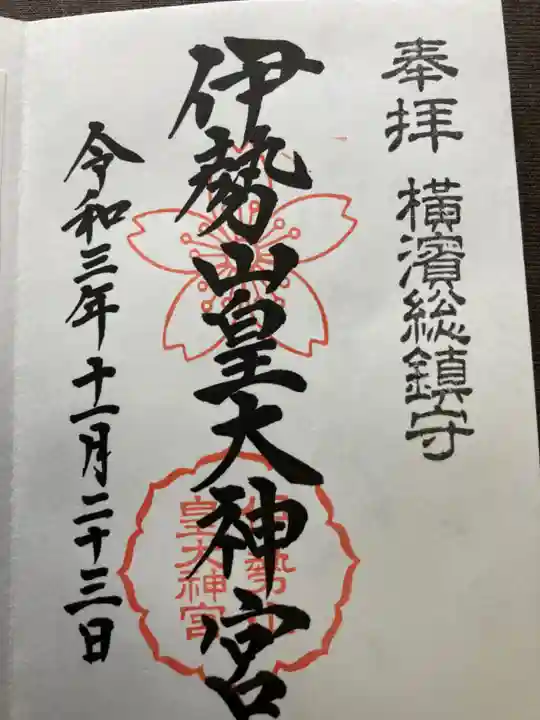 奉拝 横濱総鎮守
伊勢山皇大神宮
令和三年十一月二十三日
伊勢山
皇大神宮